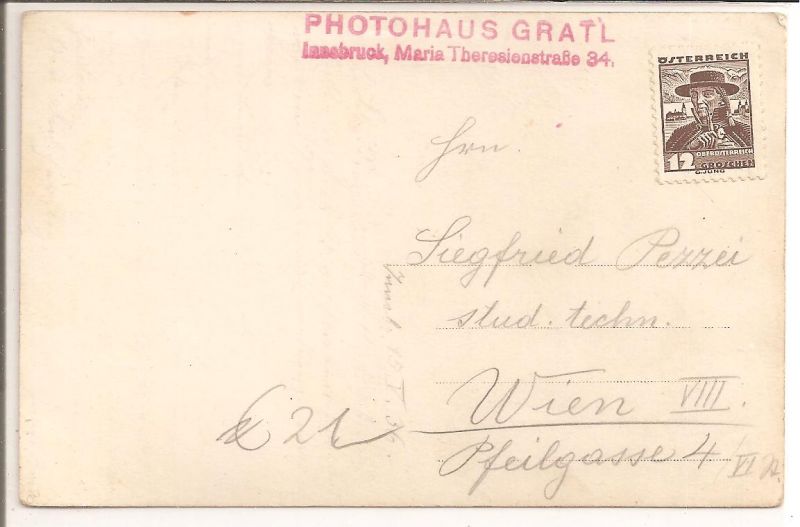 PHOTOHAUS GRATL
Innsbruck, Maria Theresienstraße 34.
ÖSTERREICH
OBERÖSTERREICH
12 GROSCHEN
G.JUNG
Hrn.
Siegfried Pezzei
stud. techn.
Wien VIII.
Pfeilgasse 4/VI
Innsb.
21